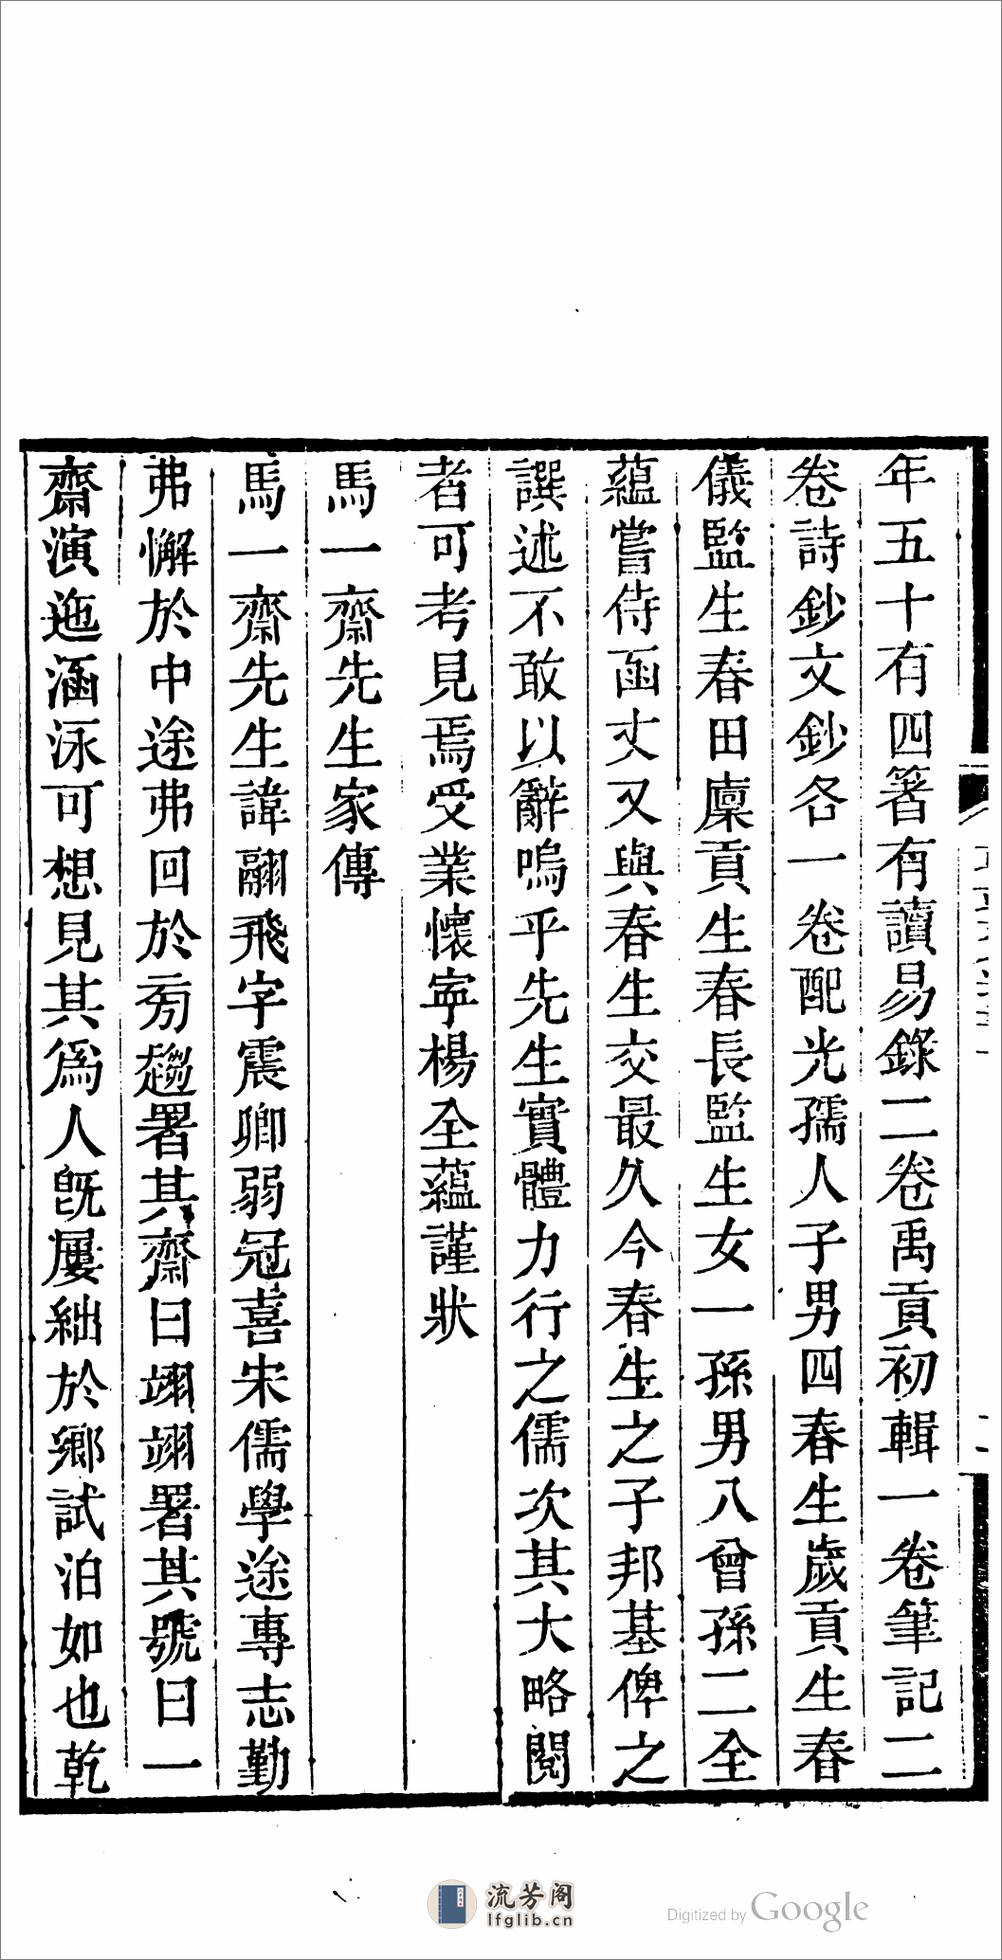 年五十有四箸有讀易錄二卷禹貢初輯一卷筆記二
卷詩鈔文鈔各一卷配光孺人子男四春生歲貢生春
儀監生春田廩貢生春長監生女一孫男八曾孫二全
蘊嘗侍函丈又與春生交最久今春生之子邦基俾之
譔述不敢以辭嗚乎先生實體力行之儒次其大略閱
者可考見焉受業懷寧楊全蘊謹狀
馬一齋先生家傳
馬一齋先生諱翮飛字震卿弱冠喜宋儒學途專志勤
弗懈於中途弗回於旁趨署其齋曰翊翊署其號曰一
齋演迤涵泳可想見其爲人旣屢絀於鄉試泊如也乾
流芳阁
lfglib.cn
Digitized by Google